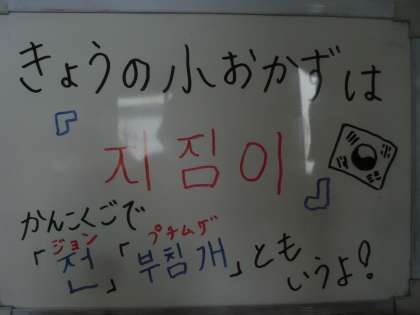 きょうの小おかずは
『지짐이』
かんこくごで
ジョン プチムゲ
「전」「부침개」とも
いうよ!